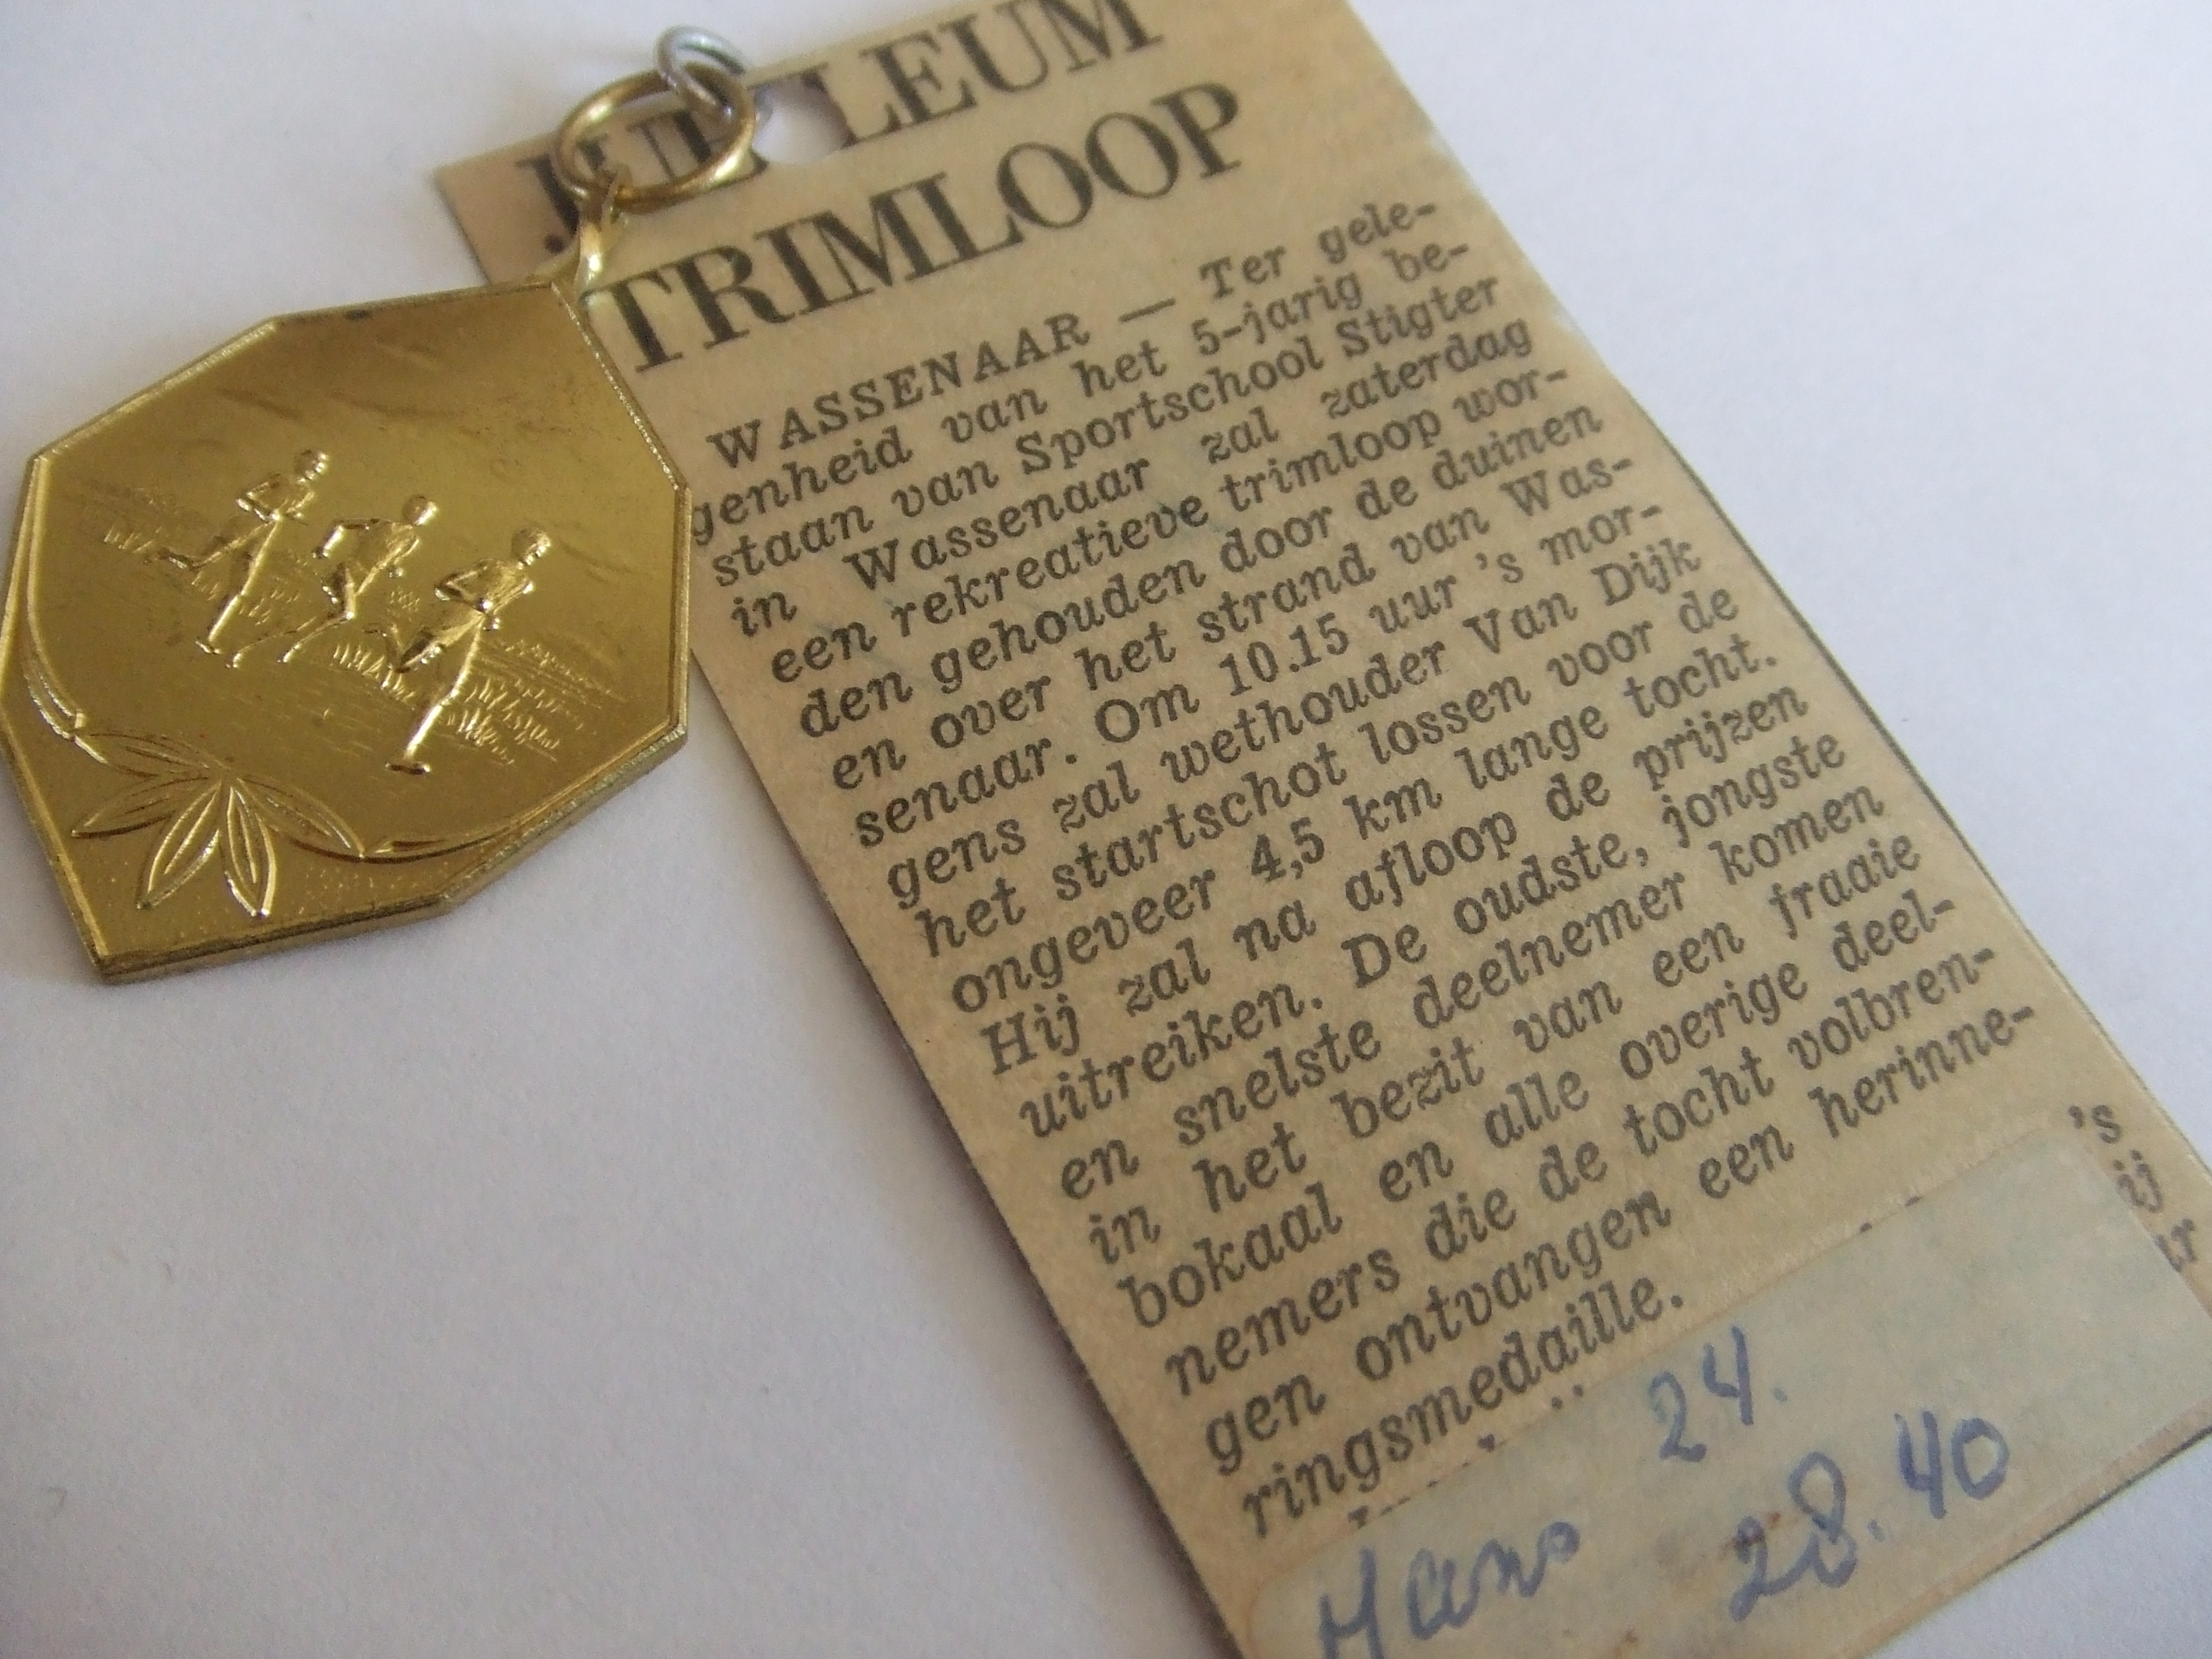 JUBILEUM
TRIMLOOP
WASSENAAR — Ter gele-
genheid van het 5-jarig be-
staan van Sportschool Stigter
in Wassenaar zal zaterdag
een rekreatieve trimloop wor-
den gehouden door de duinen
en over het strand van Was-
senaar. Om 10.15 uur 's mor-
gens zal wethouder Van Dijk
het startschot lossen voor de
ongeveer 4,5 km lange tocht.
Hij zal na afloop de prijzen
uitreiken. De oudste, jongste
en snelste deelnemer komen
in het bezit van een fraaie
bokaal en alle overige deel-
nemers die de tocht volbren-
gen ontvangen een herinne-
ringsmedaille.
's
ij
24.
Hans 28.40